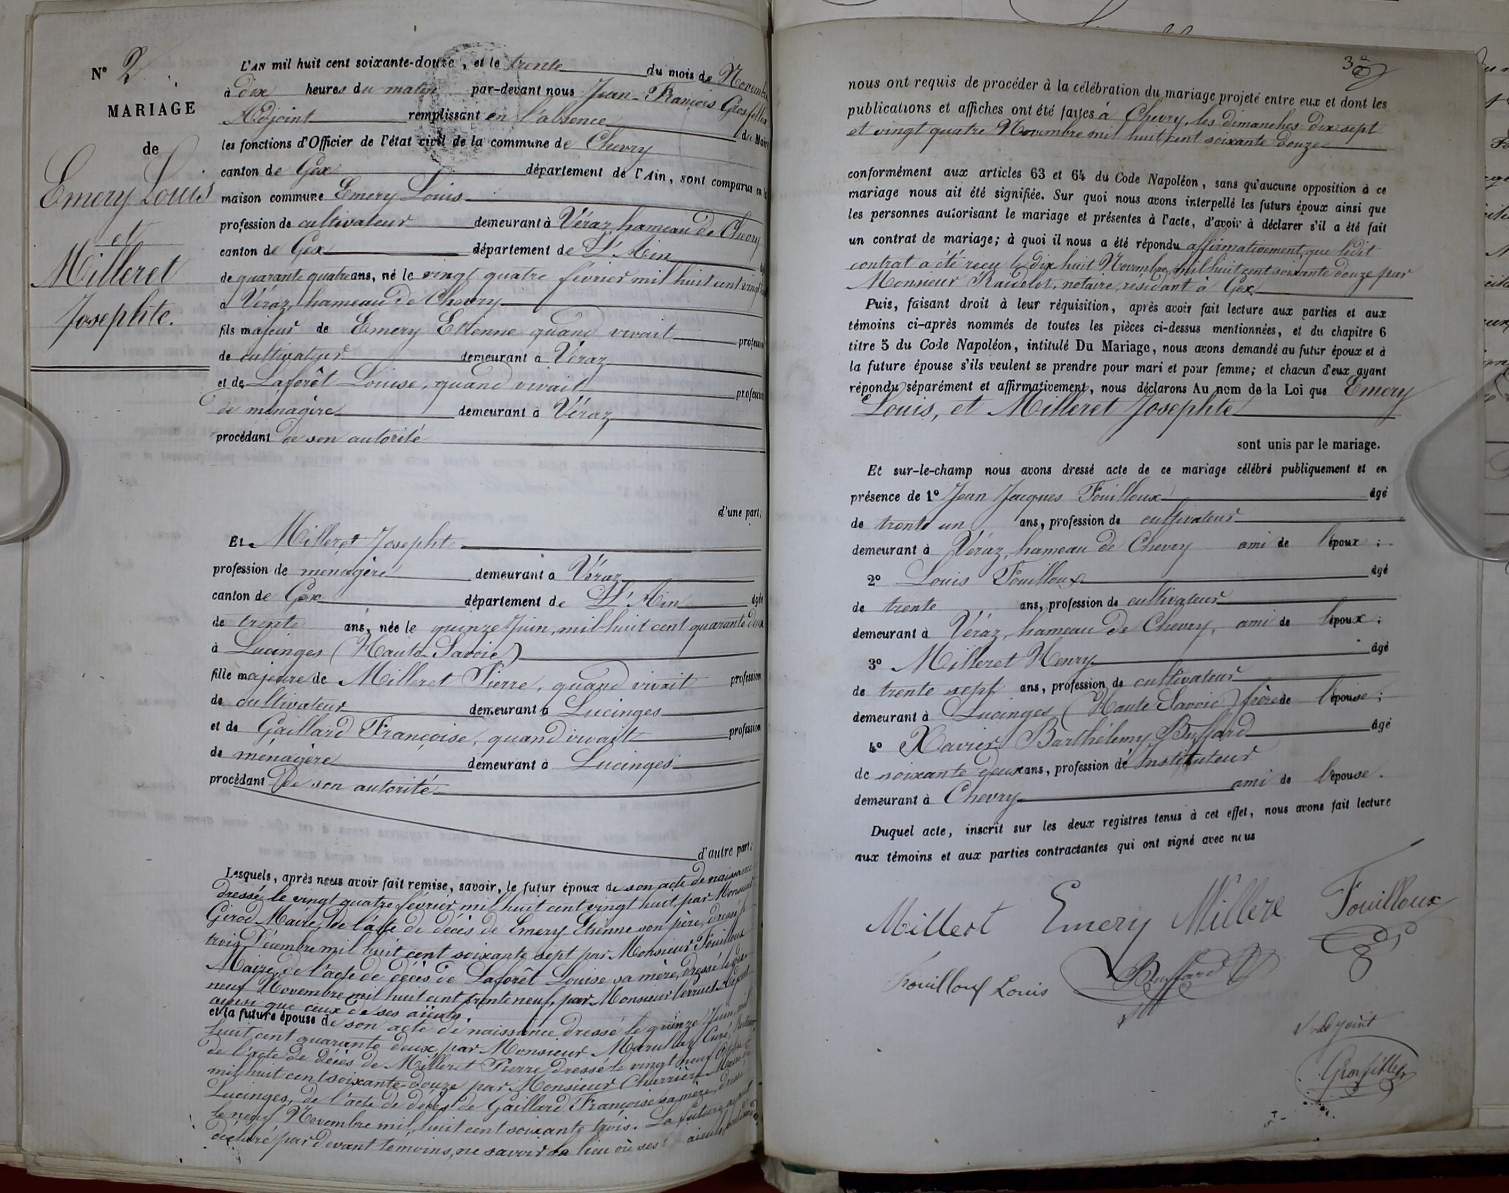 N° 2
MARIAGE
de
Emery Louis
et
Milleret
Josephte.
L'AN mil huit cent soixante-douze, et le trente du mois de Novembre
à dix heures du matin par-devant nous Jean-François Grosfilley
Adjoint remplissant en l'absence du Maire
les fonctions d'Officier de l'état civil de la commune de Chevry
canton de Gex département de l'Ain, sont comparus en la
maison commune Emery Louis
profession de cultivateur demeurant à Véraz, hameau de Chevry
canton de Gex département de l'Ain
de quarante quatre ans, né le vingt quatre février mil huit cent vingt huit
à Véraz, hameau de Chevry
fils majeur de Emery Etienne quand vivait profession
de cultivateur demeurant à Véraz
et de Laforêt Louise, quand vivait profession
de ménagère demeurant à Véraz
procédant de son autorité
d'une part,
Et Milleret Josephte
profession de ménagère demeurant à Véraz
canton de Gex département de l'Ain âgée
de trente ans, née le quinze Juin, mil huit cent quarante deux
à Lucinges (Haute-Savoie)
fille majeure de Milleret Pierre, quand vivait profession
de cultivateur demeurant à Lucinges
et de Gaillard Françoise, quand vivait profession
de ménagère demeurant à Lucinges
procédant De son autorité
d'autre part;
Lesquels, après nous avoir fait remise, savoir, le futur époux de son acte de naissance
dressé le vingt quatre février mil huit cent vingt huit par Monsieur
Girod Maire, de l'acte de décès de Emery Etienne son père, dressé le
trois Décembre mil huit cent soixante sept par Monsieur Fouilloux
Maire, de l'acte de décès de Laforêt Louise sa mère, dressé le dix
neuf Novembre mil huit cent trente neuf, par Monsieur
ainsi que ceux de ses aïeuls.
et la future épouse de son acte de naissance dressé le quinze Juin mil
huit cent quarante deux, par Monsieur Curé,
de l'acte de décès de Milleret Pierre dressé le vingt neuf
mil huit cent soixante-douze par Monsieur Maire de
Lucinges, de l'acte de décès de Gaillard Françoise sa mère, dressé
le neuf Novembre mil huit cent soixante trois. La future ayant
déclaré par devant témoins, ne savoir le lieu où ses aïeuls
nous ont requis de procéder à la célébration du mariage projeté entre eux et dont les
publications et affiches ont été faites à Chevry, les dimanches dix sept
et vingt quatre Novembre mil huit cent soixante douze
conformément aux articles 63 et 64 du Code Napoléon, sans qu'aucune opposition à ce
mariage nous ait été signifiée. Sur quoi nous avons interpellé les futurs époux ainsi que
les personnes autorisant le mariage et présentes à l'acte, d'avoir à déclarer s'il a été fait
un contrat de mariage; à quoi il nous a été répondu affirmativement, que ledit
contrat a été reçu le dix huit Novembre, mil huit cent soixante douze par
Monsieur notaire, résidant à Gex
Puis, faisant droit à leur réquisition, après avoir fait lecture aux parties et aux
témoins ci-après nommés de toutes les pièces ci-dessus mentionnées, et du chapitre 6
titre 5 du Code Napoléon, intitulé Du Mariage, nous avons demandé au futur époux et à
la future épouse s'ils veulent se prendre pour mari et pour femme; et chacun d'eux ayant
répondu séparément et affirmativement, nous déclarons Au nom de la Loi que Emery
Louis, et Milleret Josephte
sont unis par le mariage.
Et sur-le-champ nous avons dressé acte de ce mariage célébré publiquement et en
présence de 1° Jean Jacques Fouilloux âgé
de trente un ans, profession de cultivateur
demeurant à Véraz, hameau de Chevry ami de l'époux;
2° Louis Fouilloux âgé
de trente ans, profession de cultivateur
demeurant à Véraz, hameau de Chevry, ami de l'époux;
3° Milleret Henry âgé
de trente sept ans, profession de cultivateur
demeurant à Lucinges (Haute Savoie) frère de l'épouse;
4° Xavier Barthélemy Buffard âgé
de soixante deux ans, profession de Instituteur
demeurant à Chevry ami de l'épouse.
Duquel acte, inscrit sur les deux registres tenus à cet effet, nous avons fait lecture
aux témoins et aux parties contractantes qui ont signé avec nous
Millert Emery Millere Fouilloux
Fouilloux Louis Buffard
L'adjoint
Grosfilley